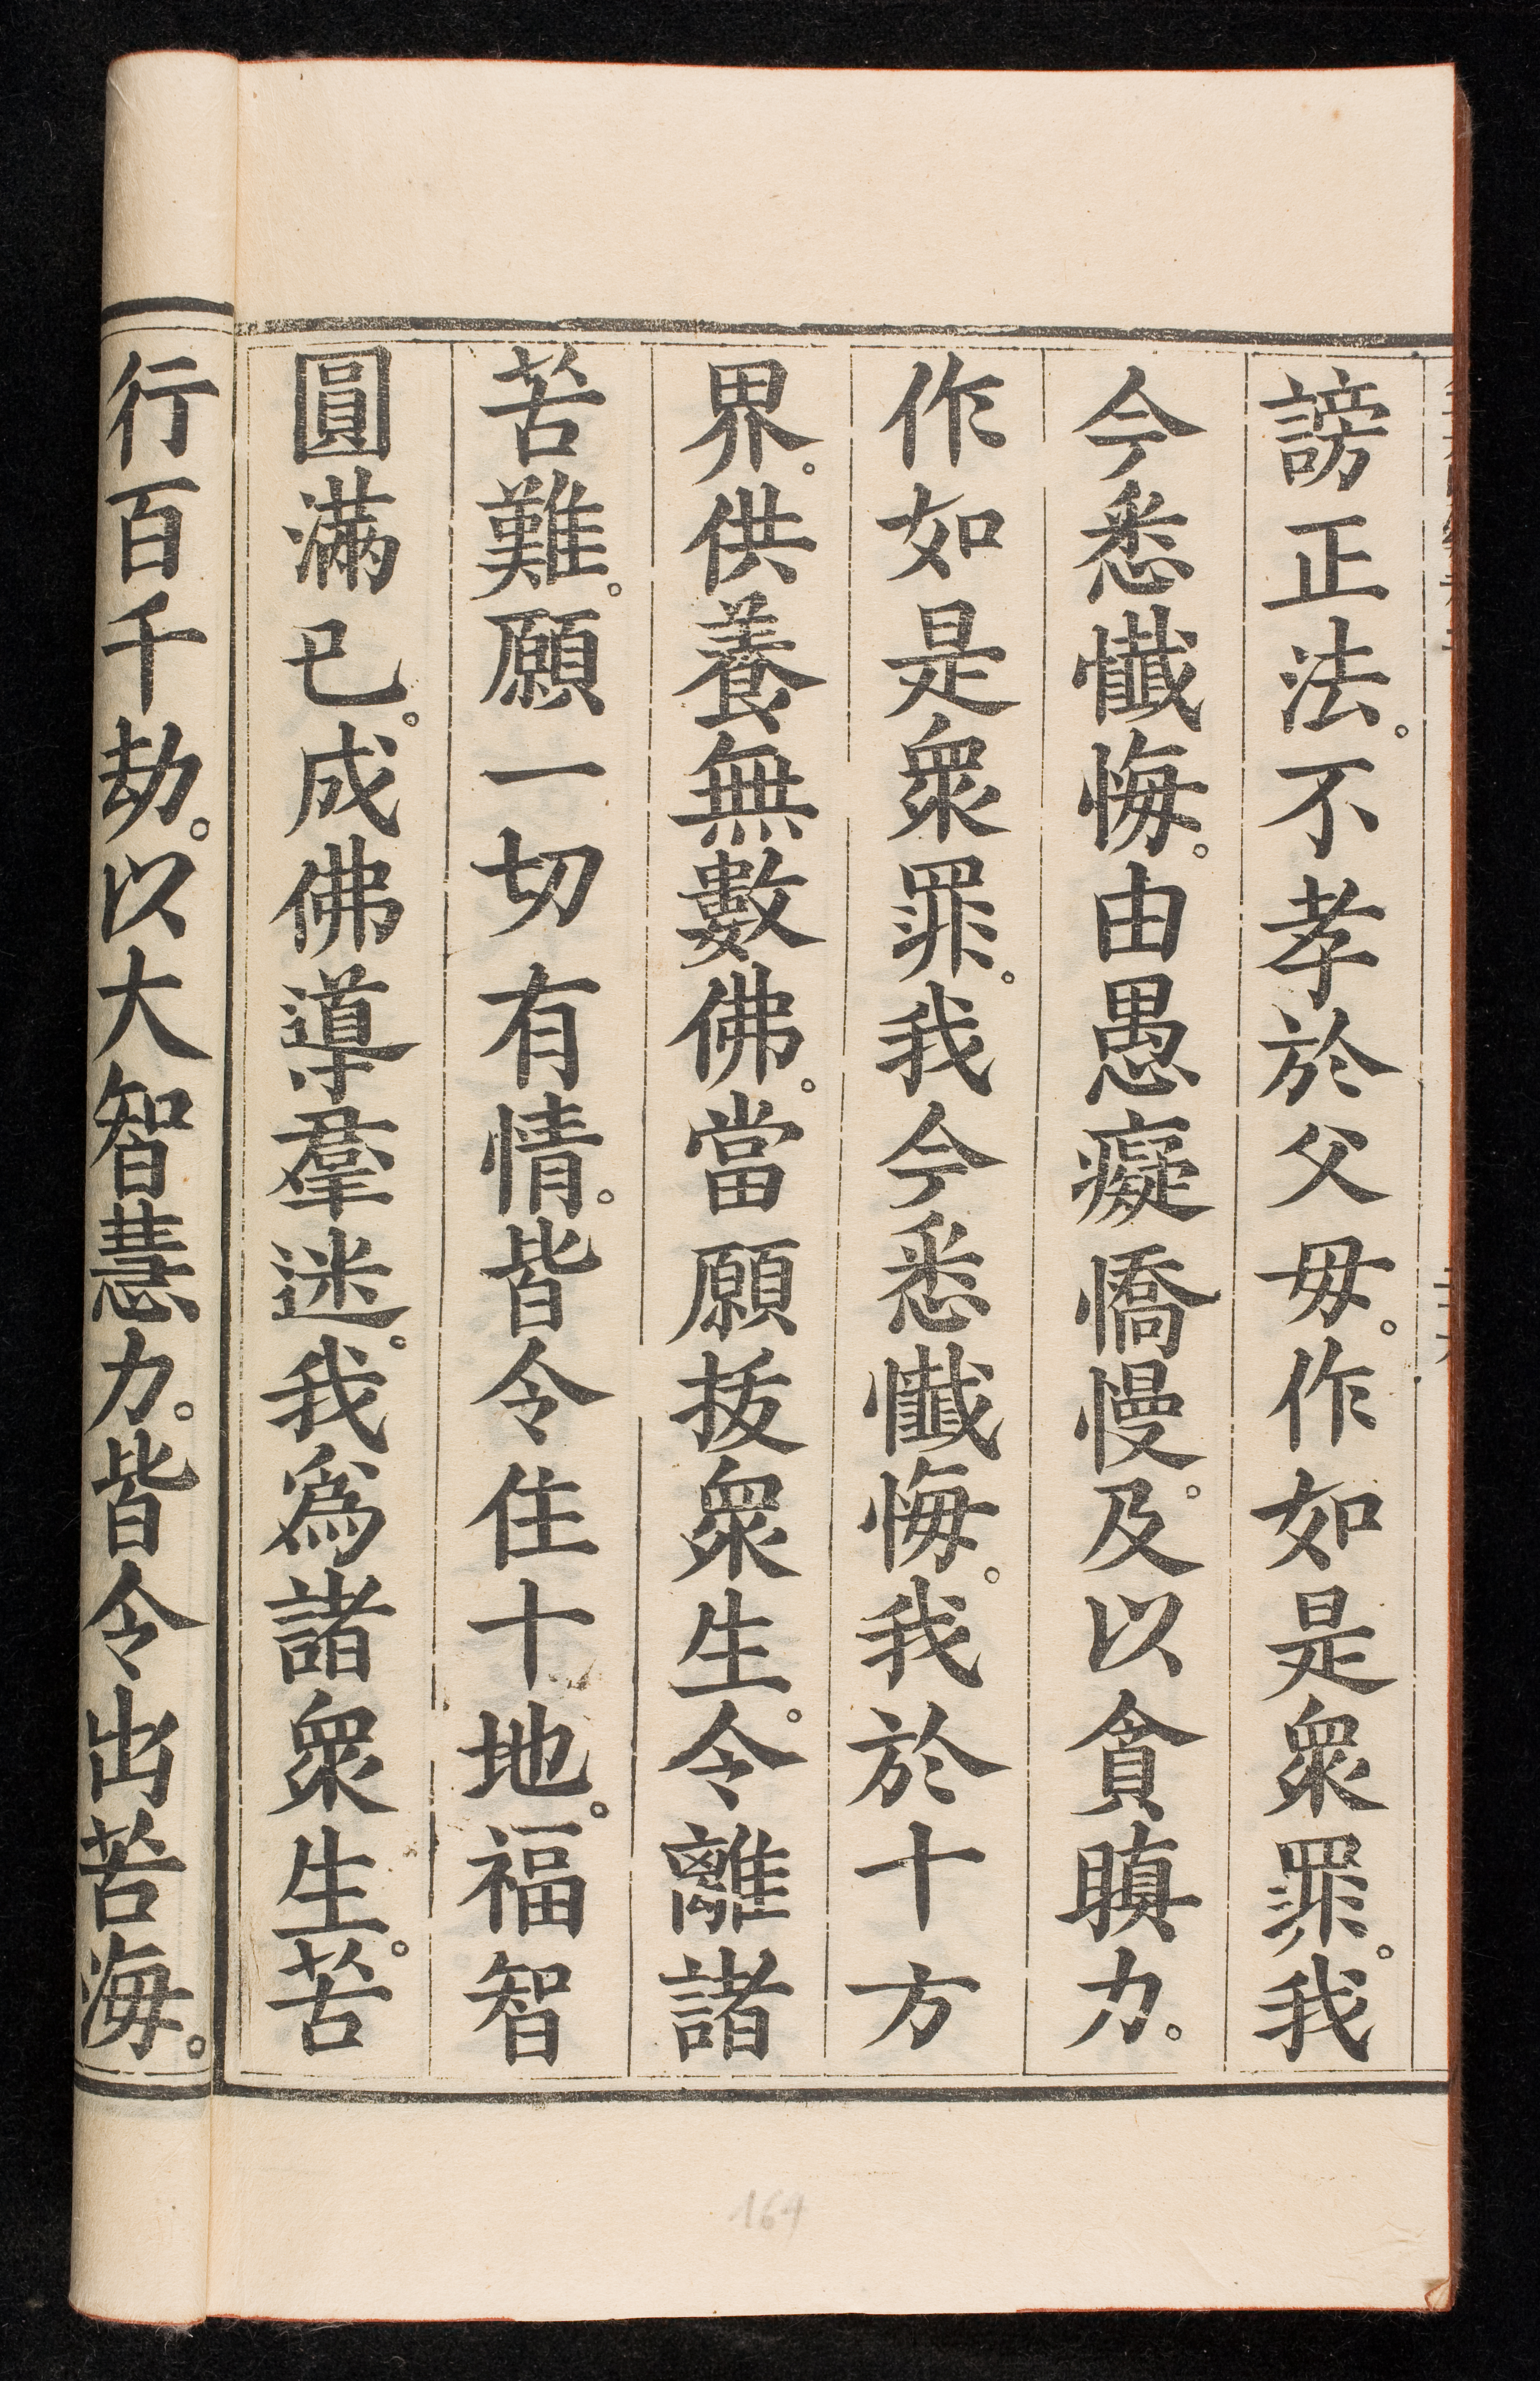 謗正法。不孝於父母。作如是衆罪。我
今悉懺悔。由愚癡憍慢。及以貪瞋力。
作如是衆罪。我今悉懺悔。我於十方
界。供養無數佛。當願拔衆生。令離諸
苦難。願一切有情。皆令住十地。福智
圓滿已。成佛導羣迷。我爲諸衆生。苦
行百千劫。以大智慧力。皆令出苦海。
164